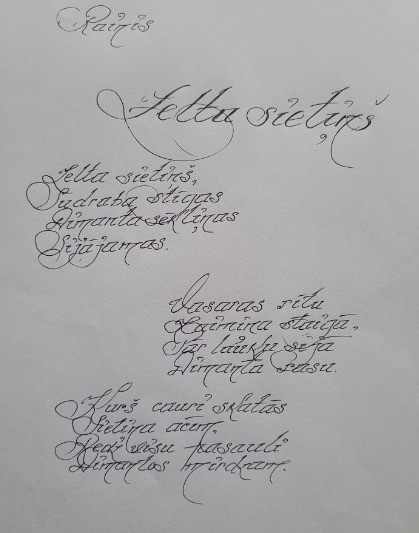 Rainis
Zelta sietiņš
Zelta sietiņš,
Sudraba stīgas
Dimanta sēkliņas
Sijājamas.
Vasaras rītu
Laimiņa staigā,
Pār lauku sijā
Dimanta rasu.
Kurš cauri skatās
Sietiņa acīm,
Redz visu pasauli
Dimantos mirdzam.